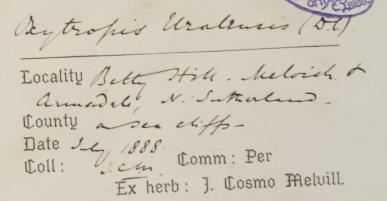 Oxytropis Uralensis (D.C.)
Locality Betty Hill - Melvich &
Armadale, N. Sutherland.
County on sea cliffs -
Date July 1888
Coll: J.C.M. Comm: Per
Ex herb: J. Cosmo Melvill.